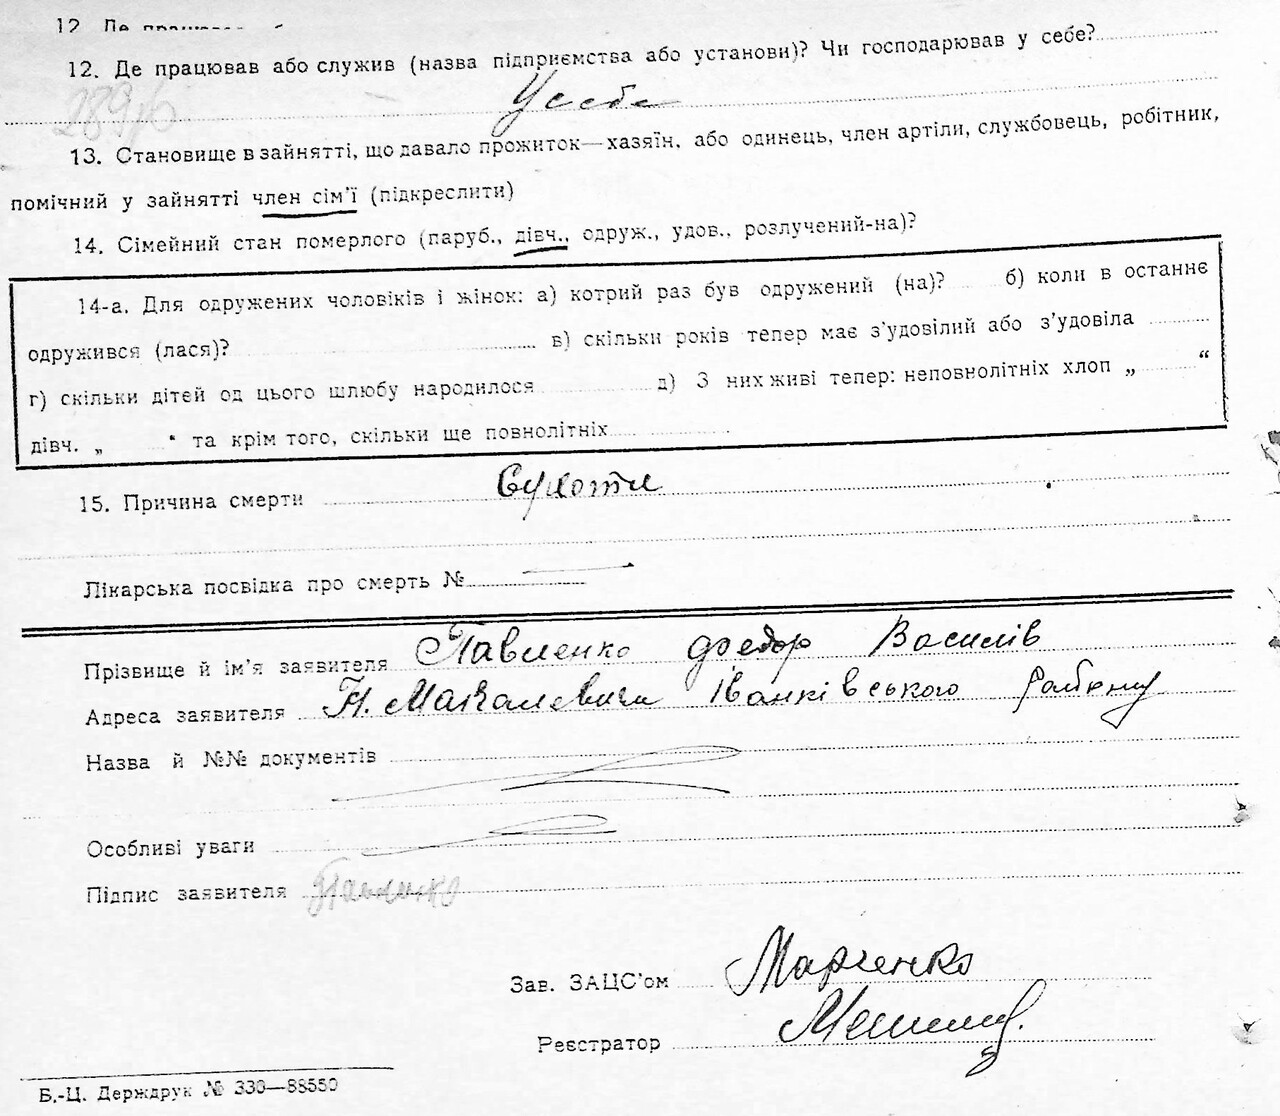 12. Де
12. Де працював або служив (назва підприємства або установи)? Чи господарював у себе?
У себе
13. Становище в зайнятті, що давало прожиток—хазяїн, або одинець, член артіли, службовець, робітник,
помічний у зайнятті член сім'ї (підкреслити)
14. Сімейний стан померлого (паруб., дівч., одруж., удов., розлучений-на)?
14-а. Для одружених чоловіків і жінок: а) котрий раз був одружений (на)? б) коли в останнє
одружився (лася)? в) скільки років тепер має з'удовілий або з'удовіла
г) скільки дітей од цього шлюбу народилося д) З них живі тепер: неповнолітніх хлоп „ “
дівч. „ “ та крім того, скільки ще повнолітніх
15. Причина смерти Сухоти
Лікарська посвідка про смерть №
Прізвище й ім'я заявителя Павленко Федор Василів
Адреса заявителя Іванківського району
Назва й №№ документів
Особливі уваги
Підпис заявителя Павленко
Зав. ЗАЦС'ом Марченко
Реєстратор
Б.-Ц. Держдрук № 330—88550